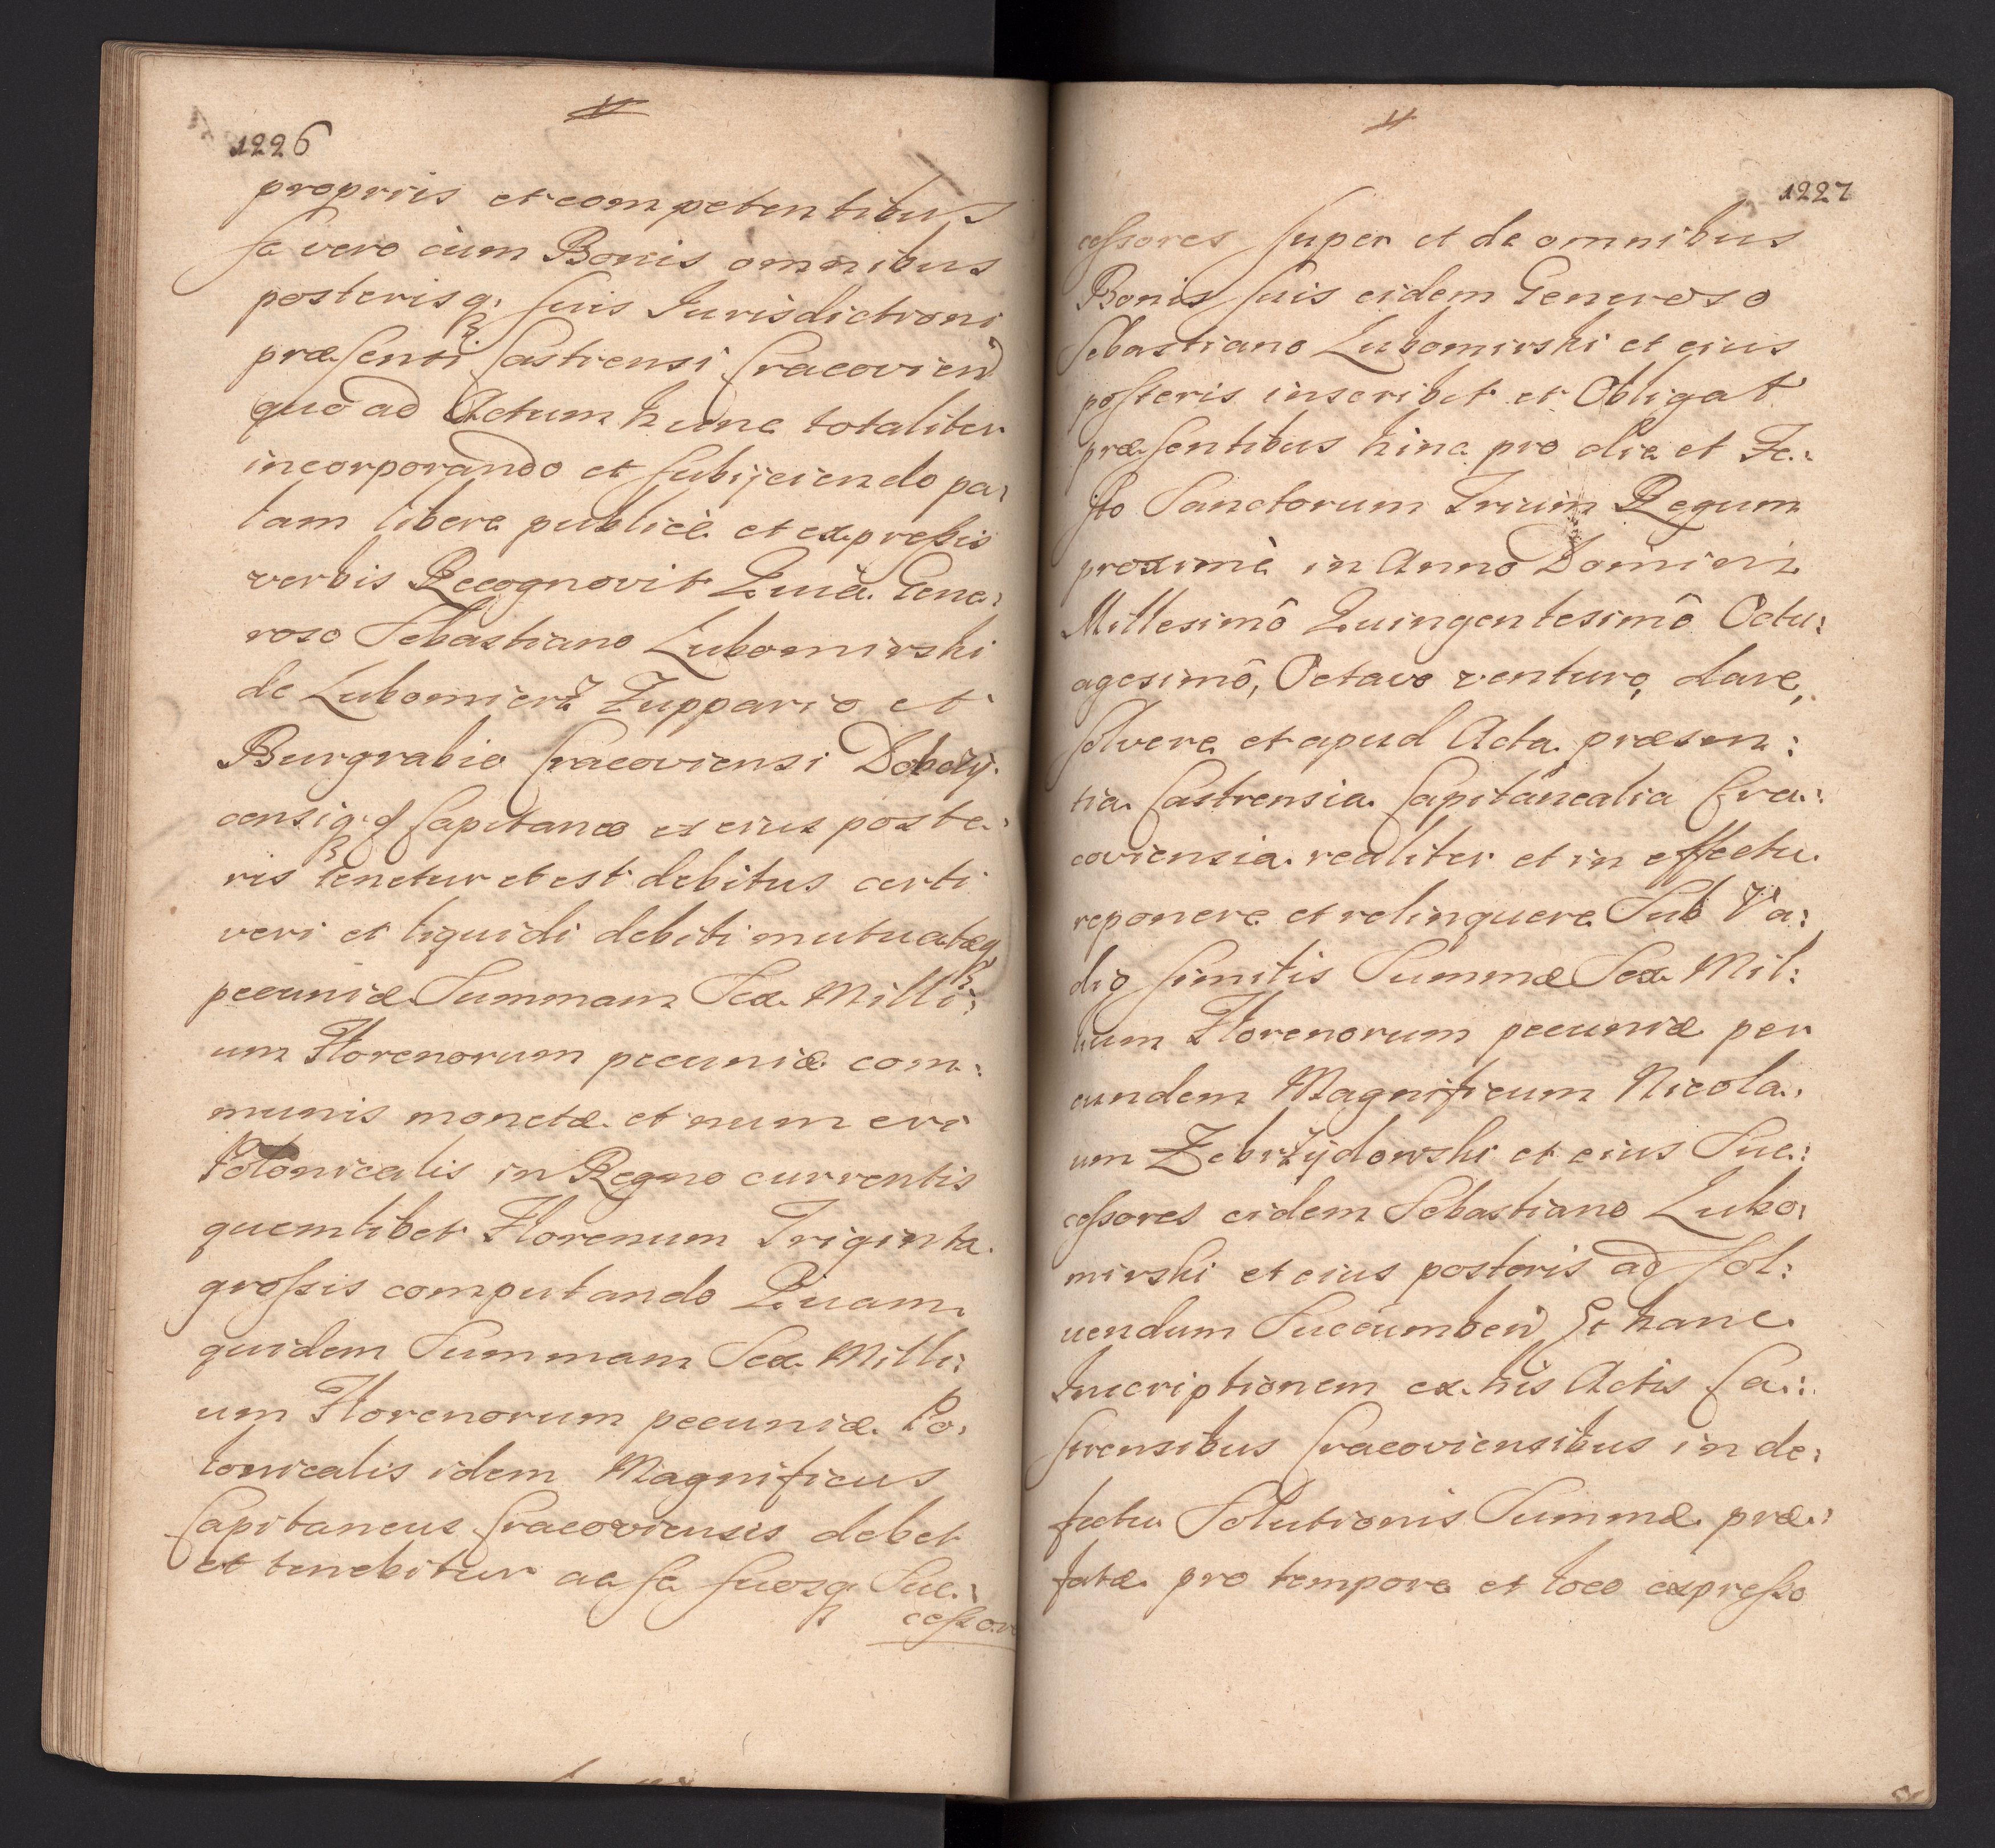 1226
propriis et competentibus
se vero cum Bonis omnibus
posterisq; suis Jurisdictioni
præsenti Castrensi Cracovien̄
quo ad Actum hunc totaliter
incorporando et subijciendo pa:
lam libere publicè et expressis
verbis Recognovit Quia Gene:
roso Sebastiano Lubomirski
de Lubomierz Zuppario et
Burgrabio Cracoviensi Dobczy:
censiq; Capitaneo et eius poste:
ris tenetur et est debitus certi
veri et liquidi debiti mutuatæq;
pecuniæ Summam Sex Milli:
um Florenorum pecuniæ com:
munis monetæ et numeri
Polonicalis in Regno currentis
quemlibet Florenum Triginta
grossis computando Quam
quidem Summam Sex Milli:
um Florenorum pecuniæ Po:
lonicalis idem Magnificus
Capitaneus Cracoviensis debet
et tenebitur ac se suosq; Suc:
cessores
1227
cessores super et de omnibus
Bonis suis eidem Generoso
Sebastiano Lubomirski et eius
posteris inscribit et Obligat
præsentibus hinc pro die et Fe:
sto Sanctorum Trium Regum
proximè in Anno Domini
Millesimô Quingentesimô Octu:
agesimô, Octavo venturo, dare,
solvere et apud Acta præsen:
tia Castrensia Capitanealia Cra:
coviensia realiter et in effectu
reponere et relinquere Sub Va:
dio similis Summæ Sex Mil:
lium Florenorum pecuniæ per
eundem Magnificum Nicola:
um Zebrzÿdowski et eius Suc:
cessores eidem Sebastiano Lubo:
mirski et eius posteris ad sol:
uendum Succumben̄ Et hanc
Inscriptionem ex his Actis Ca:
strensibus Cracoviensibus in de:
fectu Solutionis Summæ præ:
fatæ pro tempore et loco expresso